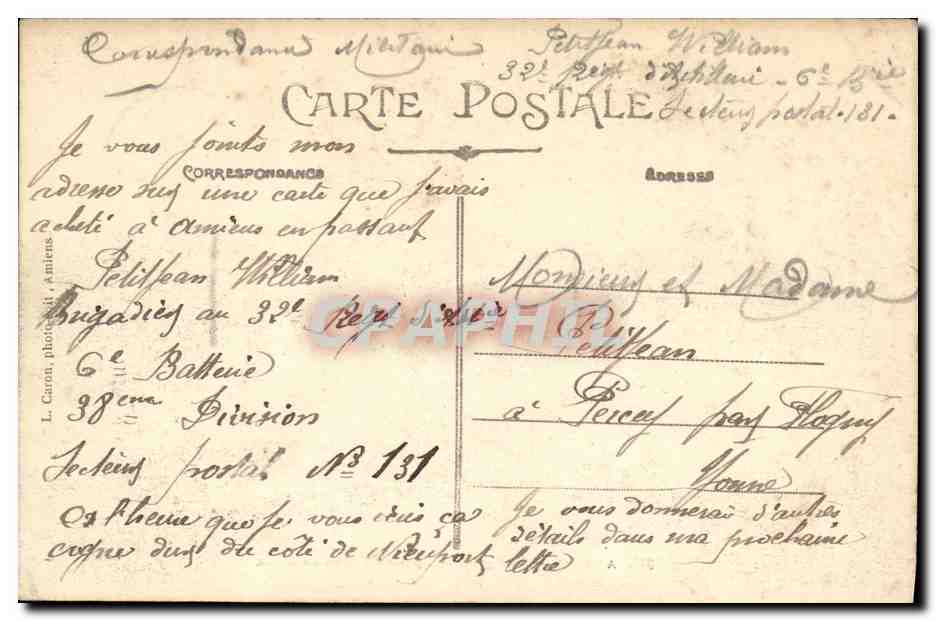 Correspondance Militaire
Petitjean William
32e Regt d'Artillerie - 6e Bie
Secteur postal. 131.
CARTE POSTALE
CORRESPONDANCE
ADRESSES
Je vous joints mon
adresse sur une carte que j'avais
acheté à Amiens en passant
Petitjean William
Brigadier au 32e Regt d'Artie
6e Batterie
38eme Division
Secteur postal No 131
à l'heure que je vous écris ça
cogne dur du côté de Nieuport
Monsieur et Madame
Petitjean
à Percey par Flogny
Yonne
Je vous donnerai d'autres
détails dans ma prochaine
lettre
L. Caron, photo-édit. Amiens
CPAPHIL